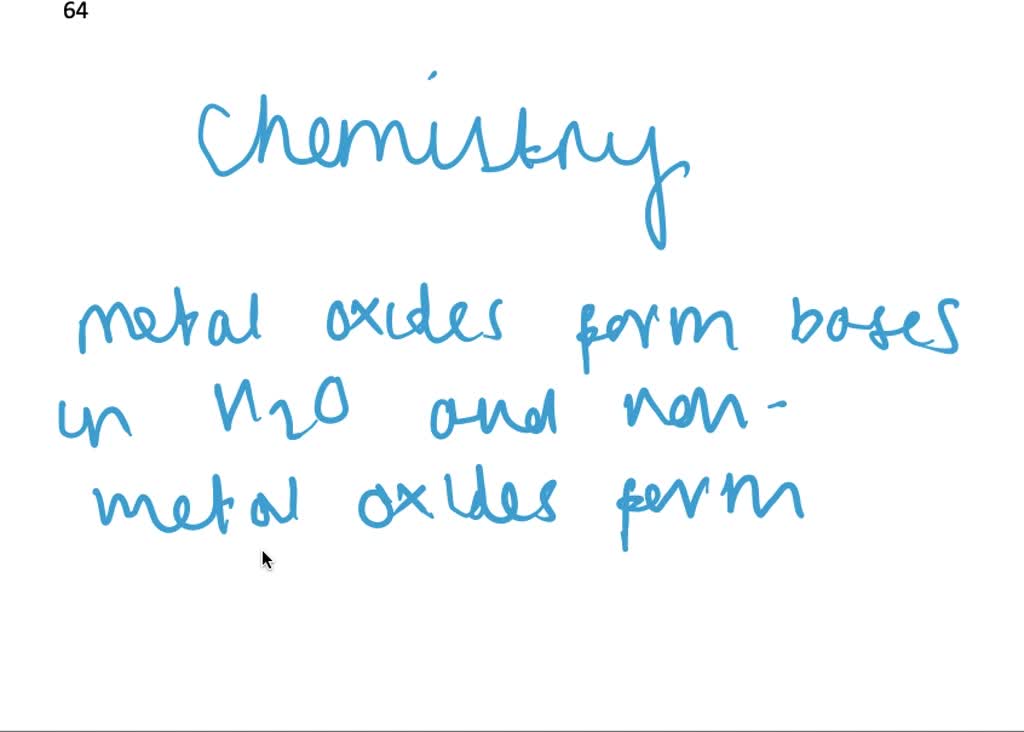 64
Chemistry
metal oxides form bases
in H2O and non-
metal oxides form